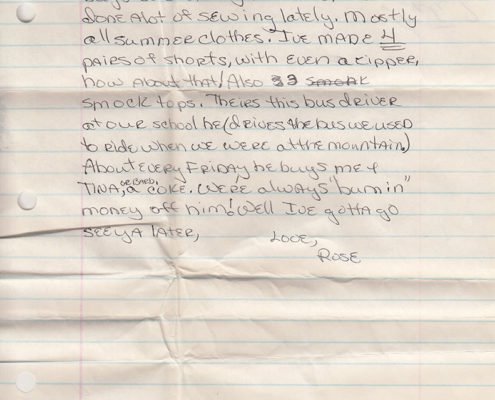 done alot of sewing lately. Mostly
all summer clothes. I've made 4
paires of shorts, with even a zipper,
how about that! Also 3 smock
smock tops. Theirs this bus driver
at our school he (drives the bus we used
to ride when we were at the mountain.)
About every Friday he buys me &
TINA, or Barb, a coke. Were always "bumin"
money off him! Well I've gotta go
see ya later, Love,
Rose